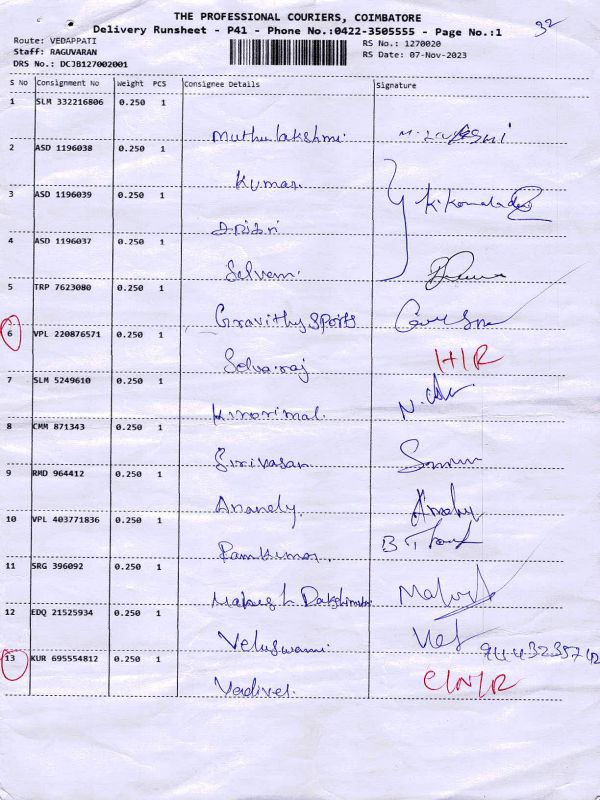 THE PROFESSIONAL COURIERS, COIMBATORE
32
Delivery Runsheet - P41 - Phone No.:0422-3505555 - Page No.:1
Route: VEDAPPATI RS No.: 1270020
Staff: RAGUVARAN RS Date: 07-Nov-2023
DRS No.: DCJB127002001
S No Consignment No Weight PCS Consignee Details Signature
1 SLM 332216806 0.250 1
Muthulakshmi.
2 ASD 1196038 0.250 1
Kumar
3 ASD 1196039 0.250 1
K. Komaladevi
4 ASD 1196037 0.250 1
Selvam.
5 TRP 7623080 0.250 1
Gravithy Sports
6 VPL 220876571 0.250 1
Selvaraj H/R
7 SLM 5249610 0.250 1
8 CMM 871343 0.250 1
Srinivasan
9 RMD 964412 0.250 1
10 VPL 403771836 0.250 1
Ramkumar.
11 SRG 396092 0.250 1
12 EDQ 21525934 0.250 1
Veluswami.
13 KUR 695554812 0.250 1
Vadivel. C/N/R